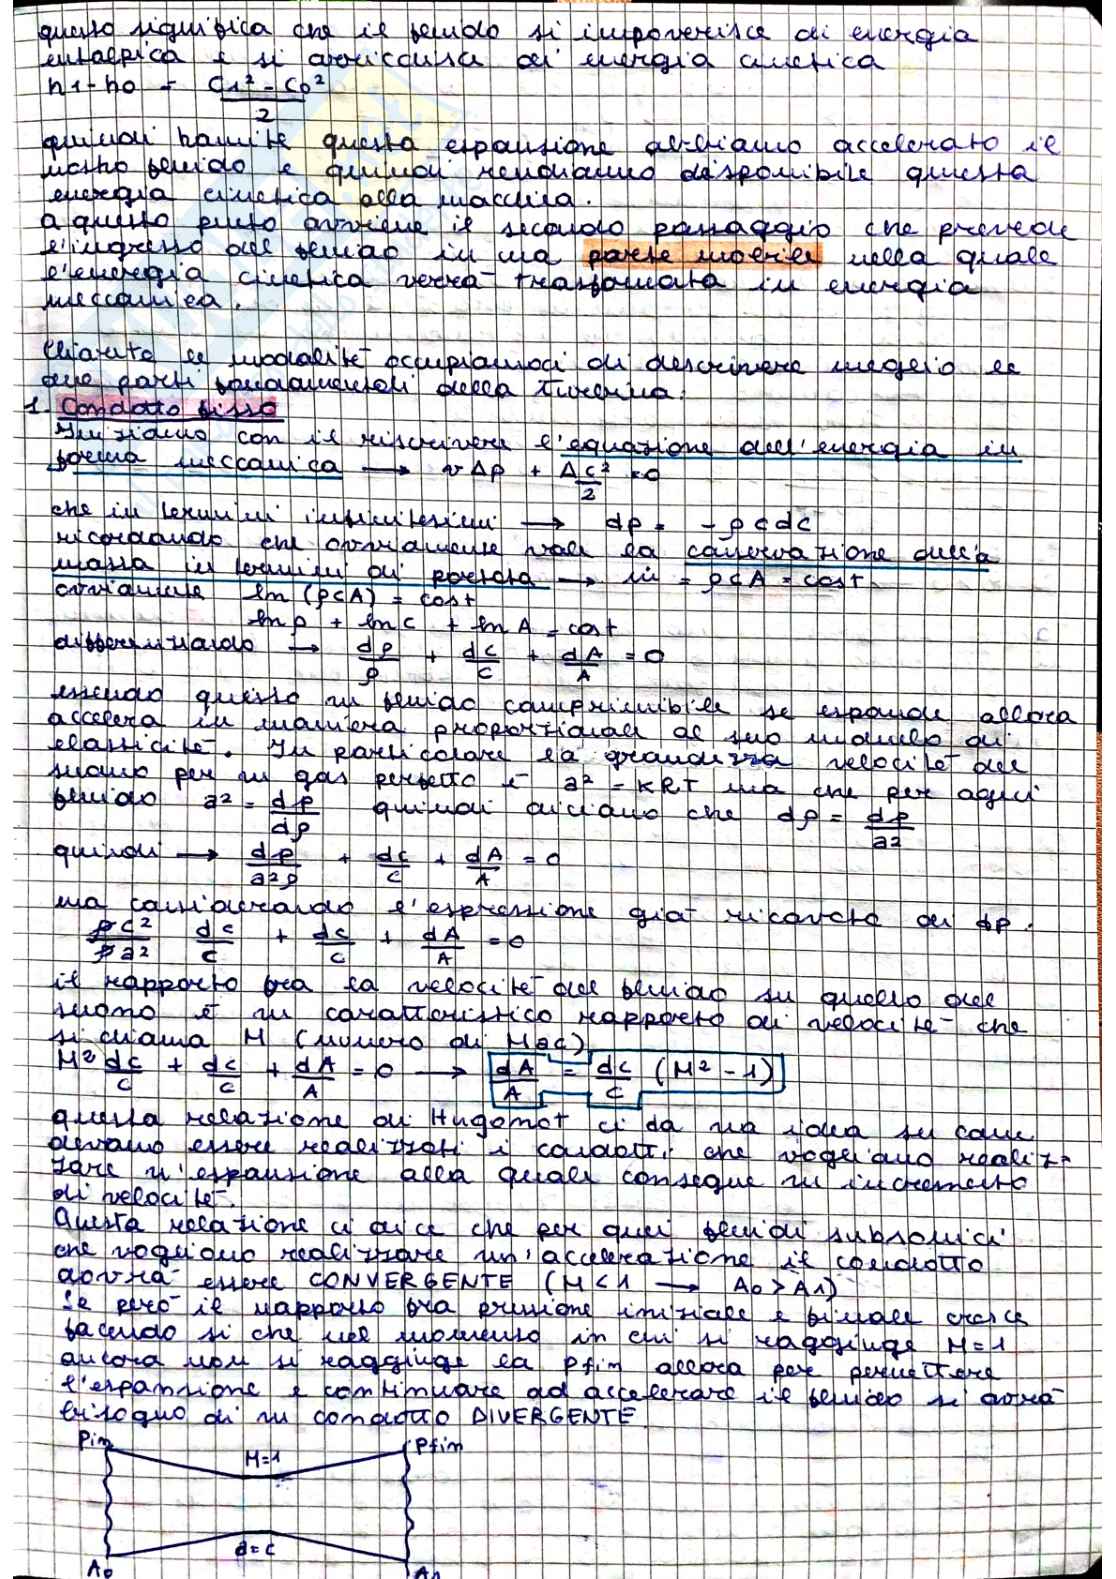 questo significa che il fluido si impoverisce di energia
entalpica e si arricchisce di energia cinetica
h1-h0 = C1² - C0² / 2
quindi tramite questa espansione abbiamo accelerato il
nostro fluido e quindi rendiamo disponibile questa
energia cinetica alla macchina.
a questo punto avviene il secondo passaggio che prevede
l'ingresso del fluido in una parte mobile nella quale
l'energia cinetica verrà trasformata in energia
meccanica.
Chiarite le modalità occupiamoci di descrivere meglio le
due parti fondamentali della turbina.
1. Condotto fisso
Iniziamo con il riscrivere l'equazione dell'energia in
forma meccanica → vΔp + Δc²/2 = 0
che in termini infinitesimi → dp = -ρcdc
ricordando che ovviamente vale la conservazione della
massa in termini di portata → ṁ = ρcA = cost.
ovviamente ln(ρcA) = cost
lnρ + lnc + lnA = cost
differenziando → dρ/ρ + dc/c + dA/A = 0
essendo questo un fluido comprimibile se espande allora
accelera in maniera proporzionale al suo modulo di
elasticità. In particolare la grandezza velocità del
suono per un gas perfetto è a² = KRT ma che per ogni
fluido a² = dp/dρ quindi diciamo che dρ = dp/a²
quindi → dp/a²ρ + dc/c + dA/A = 0
ma considerando l'espressione già ricavata di dp.
ρc²/ρa² dc/c + dc/c + dA/A = 0
il rapporto fra la velocità del fluido su quello del
suono è un caratteristico rapporto di velocità che
si chiama M (numero di Mac)
M² dc/c + dc/c + dA/A = 0 → dA/A = dc/c (M² - 1)
questa relazione di Hugomot ci da una idea su come
devano essere realizzati i condotti che vogliano realiz-
zare un'espansione alla quale consegue un incremento
di velocità.
Questa relazione ci dice che per quei fluidi subsonici
che vogliano realizzare un'accelerazione il condotto
dovrà essere CONVERGENTE (M<1 → A0 > A1)
Se però il rapporto fra pressione iniziale e finale cresce
facendo si che nel momento in cui si raggiunge M=1
ancora non si raggiunge la Pfin allora per permettere
l'espansione e continuare ad accelerare il fluido si avrà
bisogno di un condotto DIVERGENTE.
Pin M=1 Pfin
a=c
A0 A1